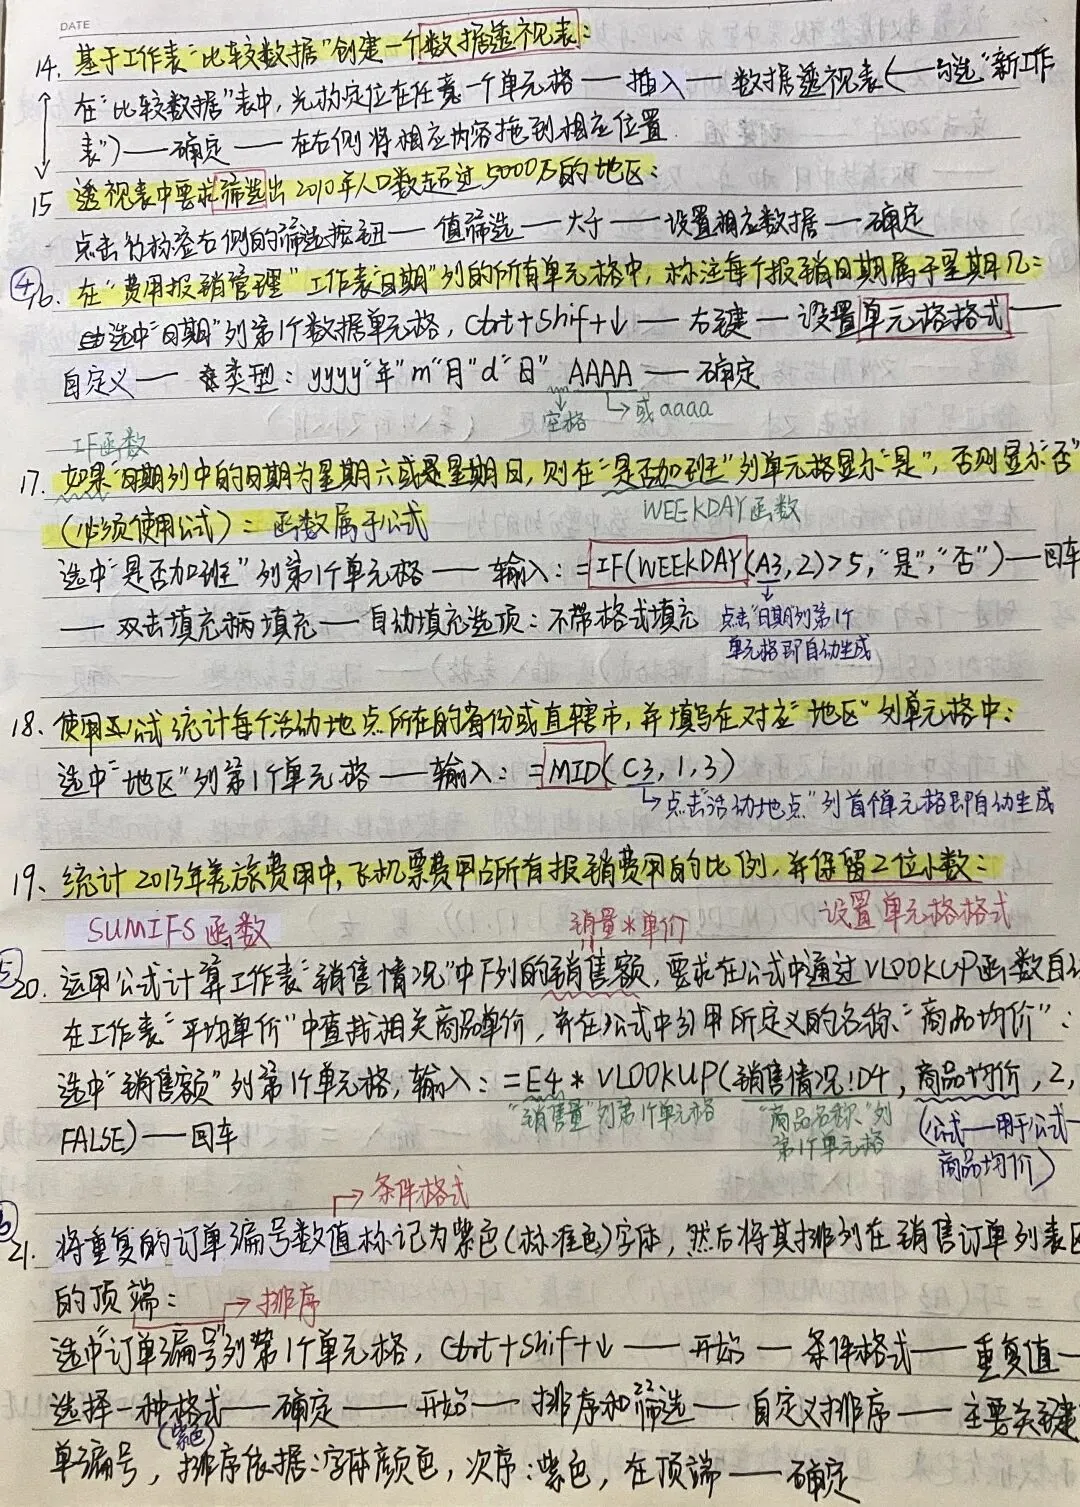 DATE
14. 基于工作表"比较数据"创建一个数据透视表:
在"比较数据"表中,光标定位在任意一个单元格——插入——数据透视表(——勾选"新工作
表")——确定——在右侧将相应内容拖到相应位置.
15 透视表中要求筛选出2010年人口数超过5000万的地区:
点击行标签右侧的筛选按钮——值筛选——大于——设置相应数据——确定
④
16. 在"费用报销管理"工作表"日期"列的所有单元格中,标注每个报销日期属于星期几:
选中"日期"列第1个数据单元格,Ctrt+Shif+↓——右键——设置单元格格式——
自定义——类型:yyyy"年"m"月"d"日" AAAA——确定
空格 或aaaa
IF函数
17. 如果"日期列中的日期为星期六或是星期日,则在"是否加班"列单元格显示"是",否则显示"否"
WEEKDAY函数
(必须使用公式):函数属于公式
选中"是否加班"列第1个单元格——输入:=IF(WEEKDAY(A3,2)>5,"是","否")——回车
——双击填充柄填充——自动填充选项:不带格式填充 点击"日期"列第1个
单元格即自动生成
18. 使用公式统计每个活动地点所在的省份或直辖市,并填写在对应"地区"列单元格中:
选中"地区"列第1个单元格——输入:=MID(C3,1,3)
点击"活动地点"列首个单元格即自动生成
19、统计2013年差旅费用中,飞机票费用占所有报销费用的比例,并保留2位小数:
SUMIFS函数 销量*单价 设置单元格格式
⑤
20. 运用公式计算工作表"销售情况"中F列的销售额,要求在公式中通过VLOOKUP函数自
在工作表"平均单价"中查找相关商品单价,并在公式中引用所定义的名称"商品均价":
选中"销售额"列第1个单元格,输入:=E4*VLOOKUP(销售情况!D4,商品均价,2,
"销售量"列第1个单元格 "商品名称"列
第1个单元格
FALSE)——回车
(公式——用于公式——
商品均价)
条件格式
21. 将重复的订单编号数值标记为紫色(标准色)字体,然后将其排列在销售订单列表区
的顶端: 排序
选中"订单编号"列第1个单元格,Ctrt+Shif+↓——开始——条件格式——重复值——
选择一种格式——确定——开始——排序和筛选——自定义排序——主要关键
(紫色)
单编号,排序依据:字体颜色,次序:紫色,在顶端——确定